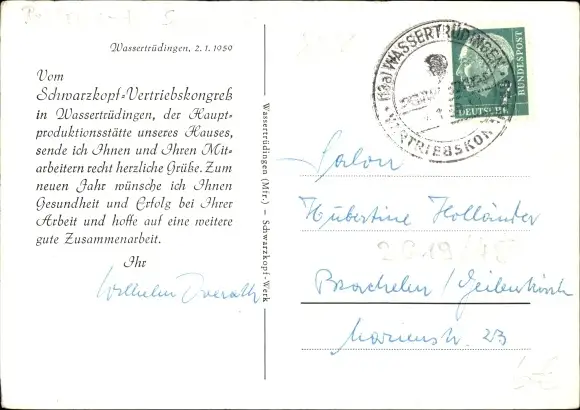 Wassertrüdingen, 2.1.1959
Vom
Schwarzkopf-Vertriebskongreß
in Wassertrüdingen, der Haupt-
produktionsstätte unseres Hauses,
sende ich Ihnen und Ihren Mit-
arbeitern recht herzliche Grüße. Zum
neuen Jahr wünsche ich Ihnen
Gesundheit und Erfolg bei Ihrer
Arbeit und hoffe auf eine weitere
gute Zusammenarbeit.
Ihr
Wilhelm Overath
Wassertrüdingen (Mfr.) – Schwarzkopf-Werk
(13a) WASSERTRÜDINGEN
VERTRIEBSKON
DEUTSCHE
BUNDESPOST
Salon
Hubertine Holländer
Brachelen/Geilenkirch
Marienstr. 23